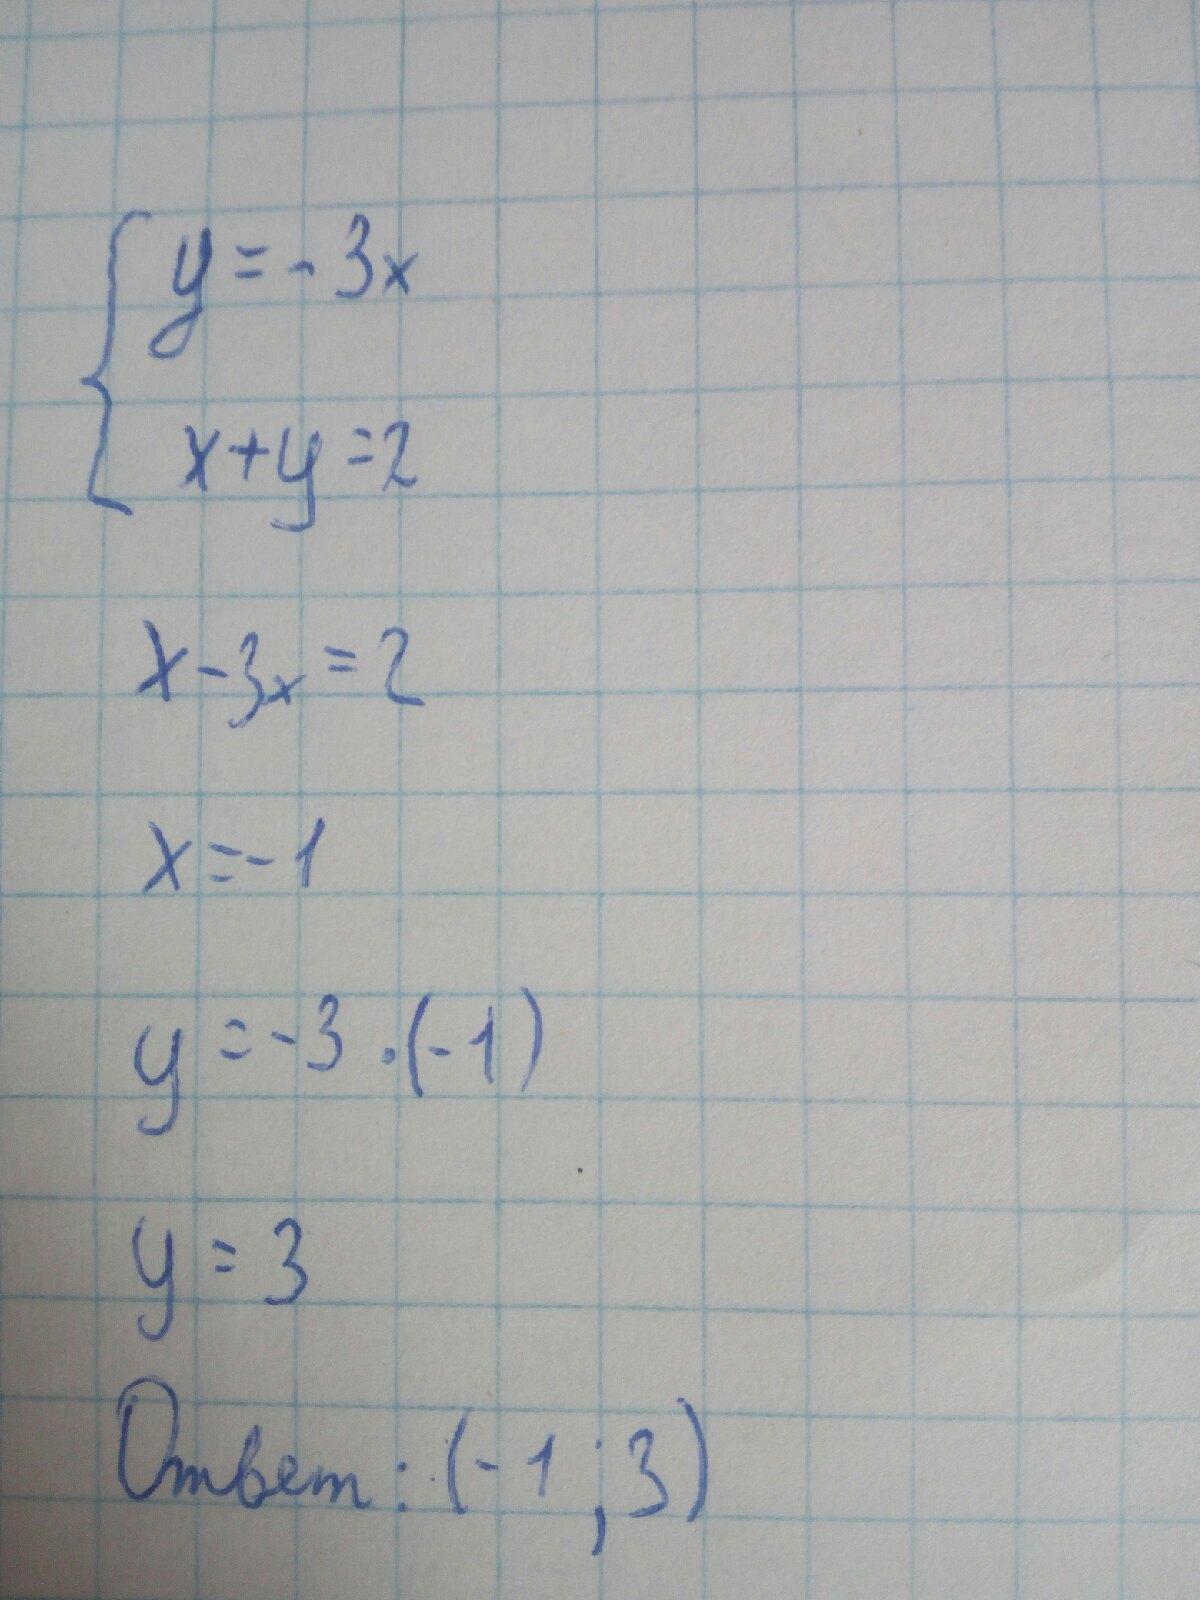 { y = - 3x
x + y = 2
x - 3x = 2
x = - 1
y = - 3 · (- 1)
y = 3
Ответ: (- 1 ; 3)